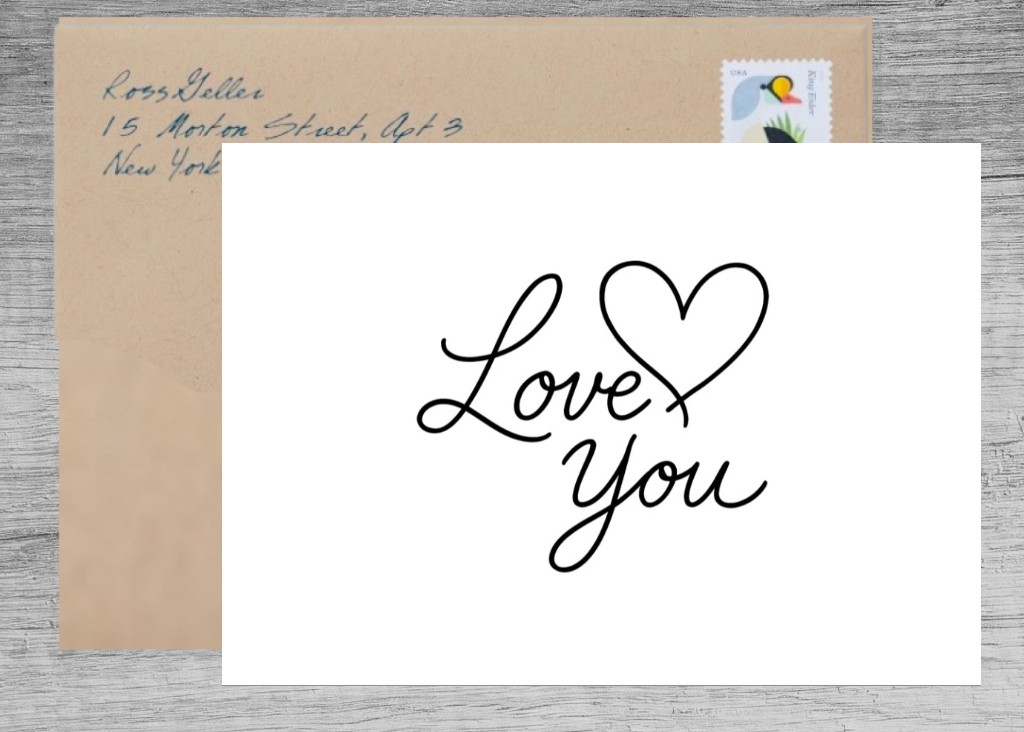 Ross Geller
15 Morton Street, Apt 3
New York
USA
King Eider
Love
You